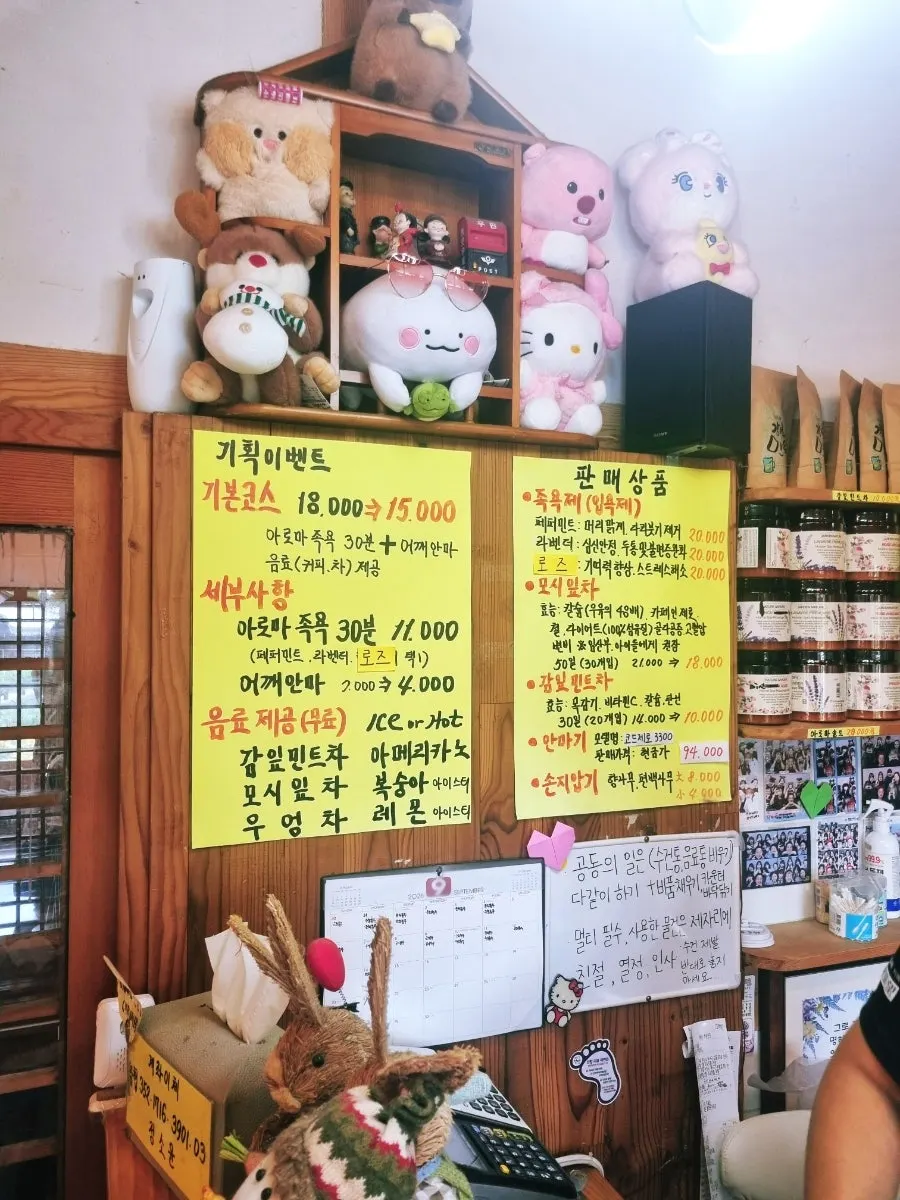 POST
SONY
기획이벤트
기본코스 18,000⇒15.000
아로마 족욕 30분 + 어깨안마
음료(커피.차) 제공
세부사항
아로마 족욕 30분 11.000
(페퍼민트.라벤더. 로즈 택1)
어깨안마 7.000⇒4.000
음료 제공(무료) Ice or Hot
감잎민트차 아메리카노
모시잎차 복숭아 아이스티
우엉차 레몬 아이스티
판매상품
•족욕제 (입욕제)
페퍼민트: 머리맑게, 각질붓기 제거 20.000
라벤더: 심신안정, 두통및불면증완화 20.000
로즈 : 기억력향상. 스트레스해소 20.000
•모시잎차
효능: 칼슘(우유의 48배) 카페인 제로,
변비 ※임산부. 아이들에게 권장
50일 (30개입) 21.000 ⇒ 18.000
•감잎민트차
30일 (20개입) 14.000 ⇒ 10.000
•안마기 모델명: 코드제로 3300
판매가격: 현금가 94.000
•손지압기 향나무.편백나무 大 8.000
小 4.000
감잎민트차 10.000원
2026 9 SEPTEMBER
공동의 일은 (수건통,음료통 비우기)
다같이 하기 + 비품채우기
멀티 필수, 사용한 물건은 제자리에
친절, 열정, 인사
계좌이체
352.1716.3901.03
정소윤